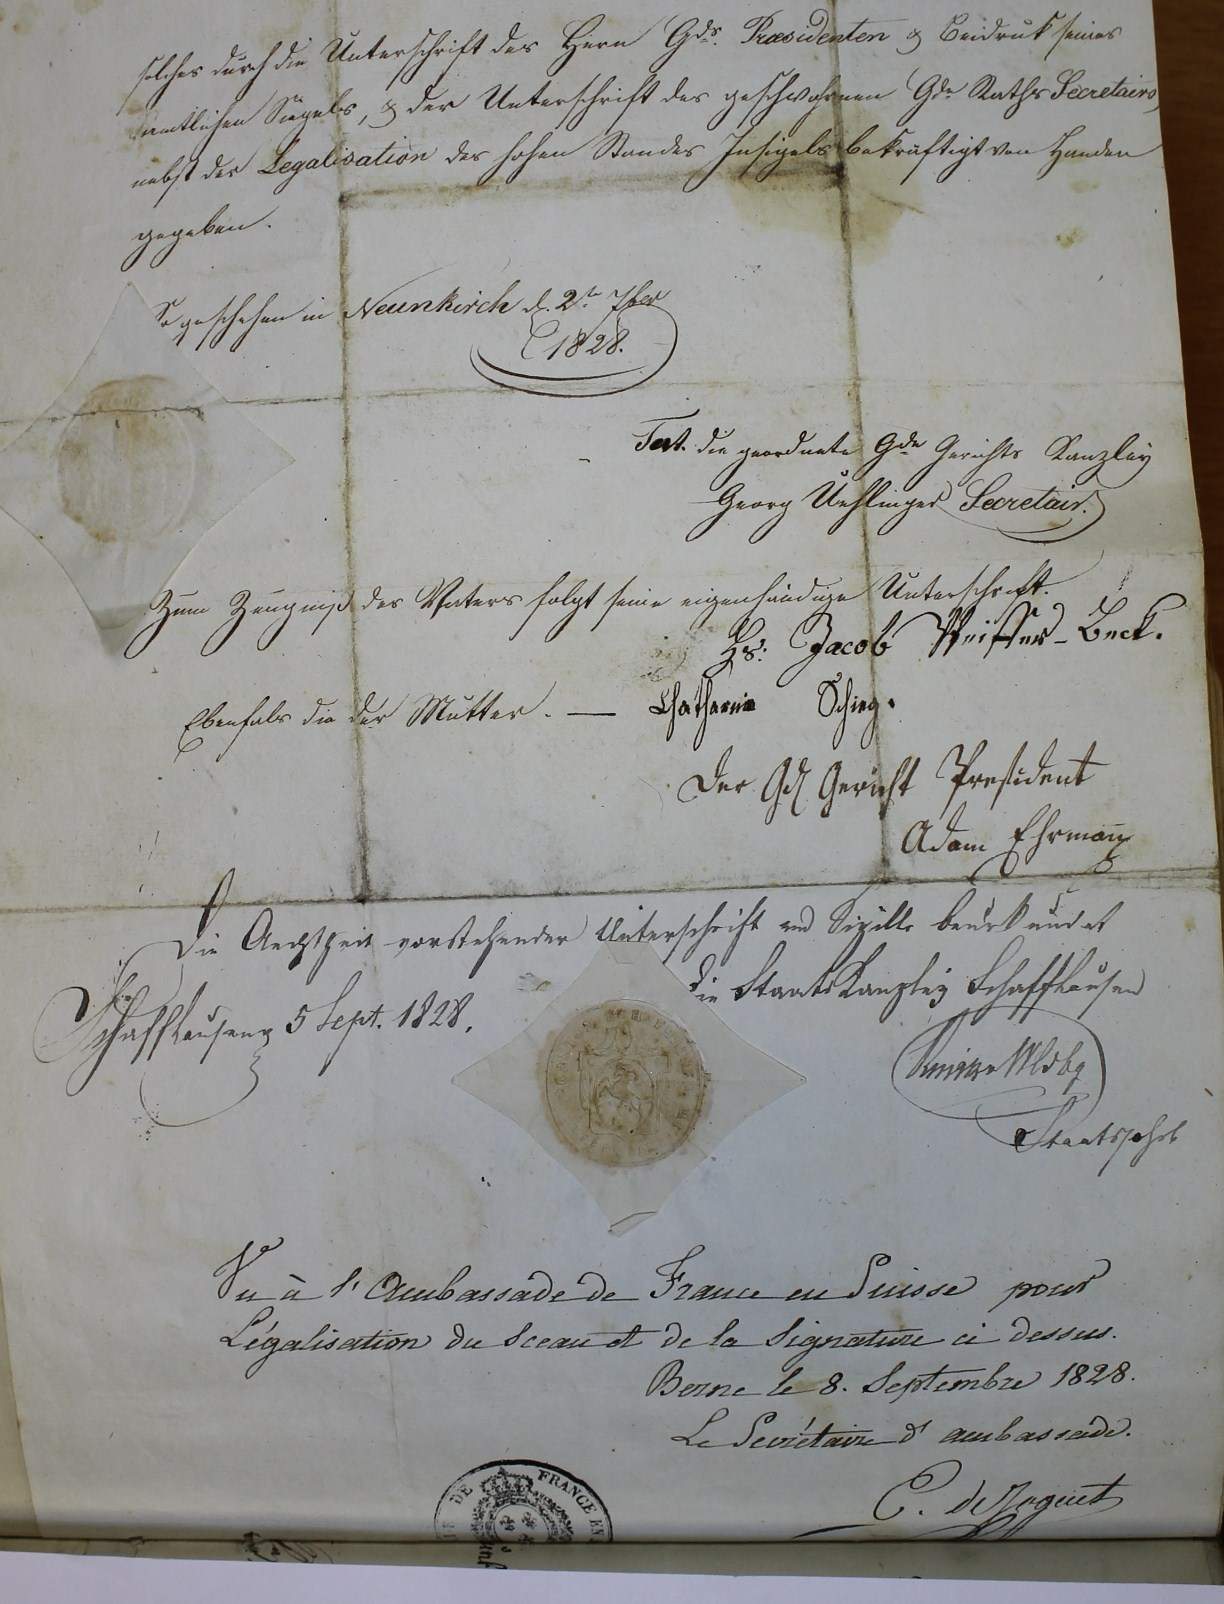 solches durch die Unterschrift des Herrn Gds. Præsidenten & Beidruk seines
amtlichen Siegels, & der Unterschrift des geschwohrnen Gde Raths Secretairs,
nebst der Legalisation des hohen Standes Insigels bekräftigt von Handen
gegeben.
So geschehen in Neunkirch d. 2tn 7ber
1828.
Test. die geordnete Gde Gerichts Kanzley
Georg Uehlinger Secretair.
Zum Zeugniß des Vaters folgt seine eigenhändige Unterschrift.
Hs: Jacob Weisser-Beck.
Ebenfals die der Mutter. —
Der Gd Gericht President
Adam Ehrmann
Die Aechtheit vorstehender Unterschrift und Sigills beurkundet
die StaatsKanzley Schaffhausen
Schaffhausen 5 Sept. 1828.
Staatsschrb
Vu à l'Ambassade de France en Suisse pour
Légalisation du Sceau et de la Signature ci dessus.
Berne le 8. Septembre 1828.
Le Secrétaire d'ambassade.
DE FRANCE EN